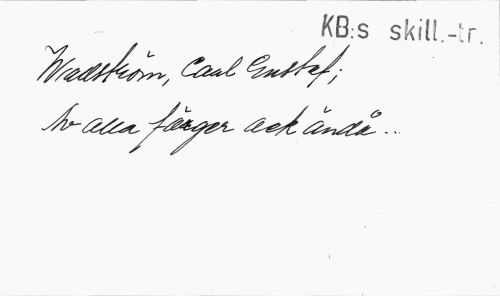 KB:s skill.-tr.
Wadström, Carl Gustaf;
Av alla färger ack ändå...